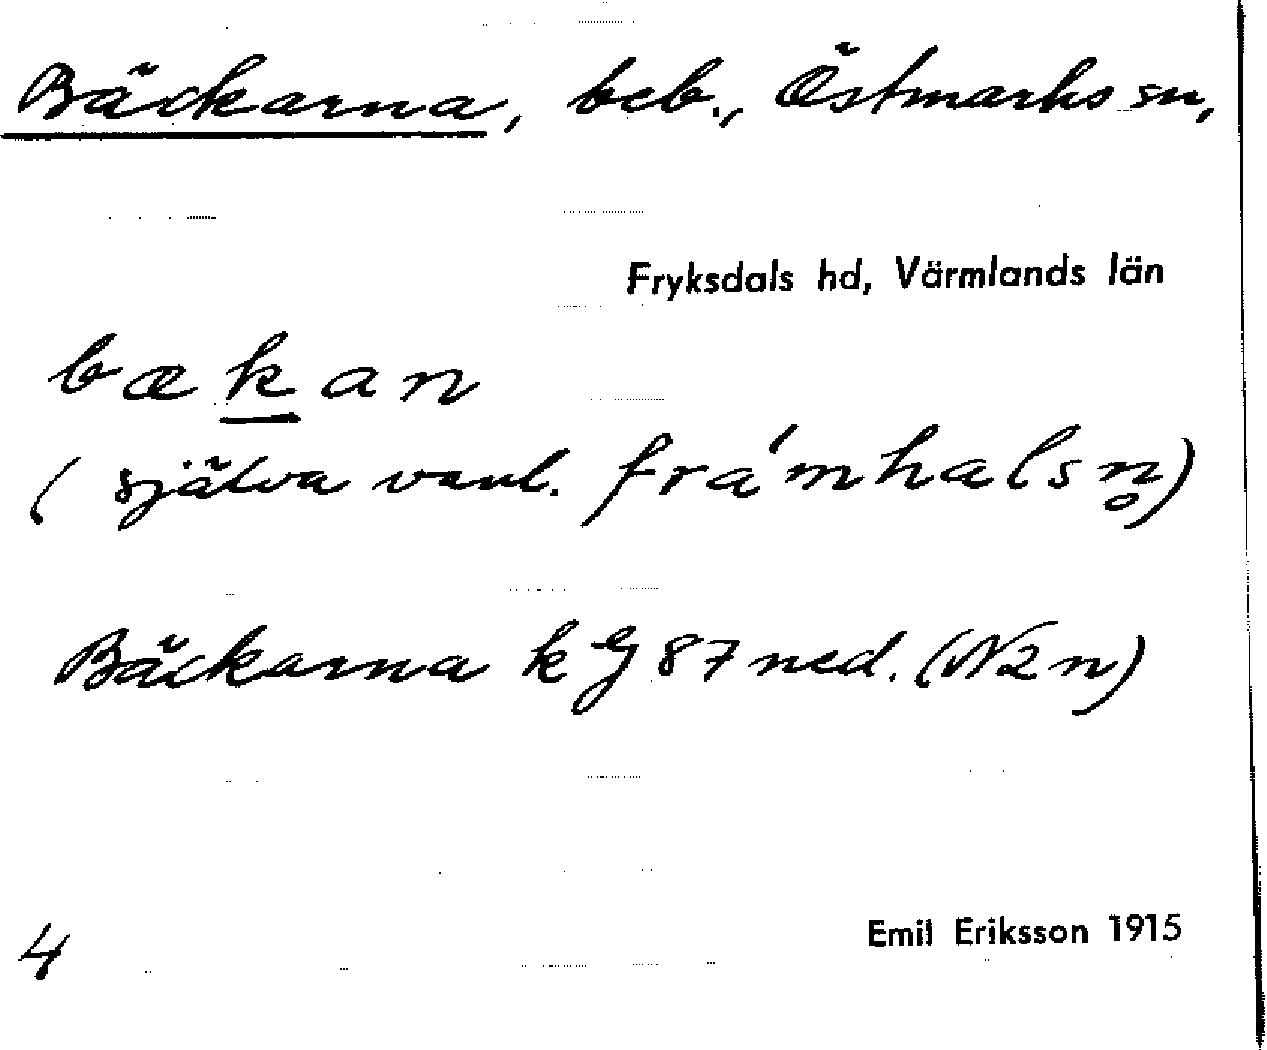 Bäckarna, beb., Östmarks sn,
Fryksdals hd, Värmlands län
bækan
(själva vanl. frá'mhalsn̥)
Bäckarna k G 87 ned. (N2n)
4
Emil Eriksson 1915